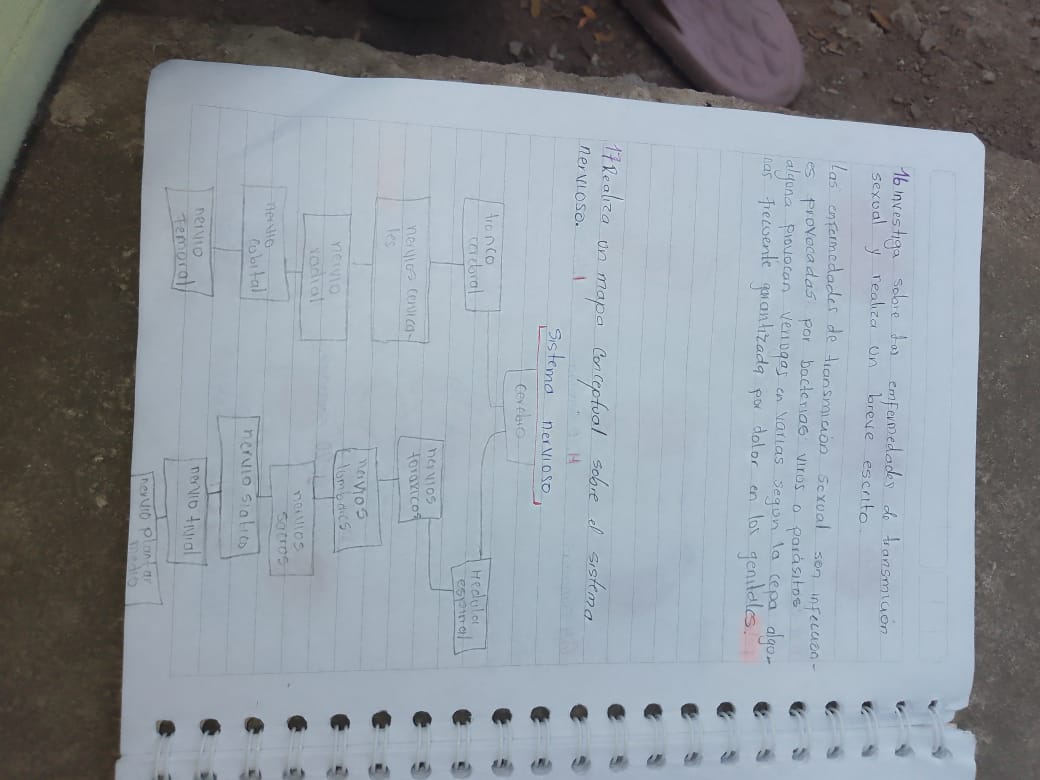 16 Investiga sobre las enfermedades de transmición
sexual y realiza un breve escrito.
las enfermedades de transmición sexual son infeccuen-
es provocadas por bacterias virus o parásitos
alguna provocan verrugas en varias según la cepa algu-
nas frecuente garantizada por dolor en los genitales.
17 Realiza un mapa conceptual sobre el sistema
nervioso.
Sistema nervioso
cerebro
tronco
cerebral
Medular
espinal
nervios cervica-
les
nervios
toraticos
nervio
radial
nervios
lombares
nervio
cubital
nervios
sacros
nervio
femoral
nervio siatico
nervio tivial
nervio plantar